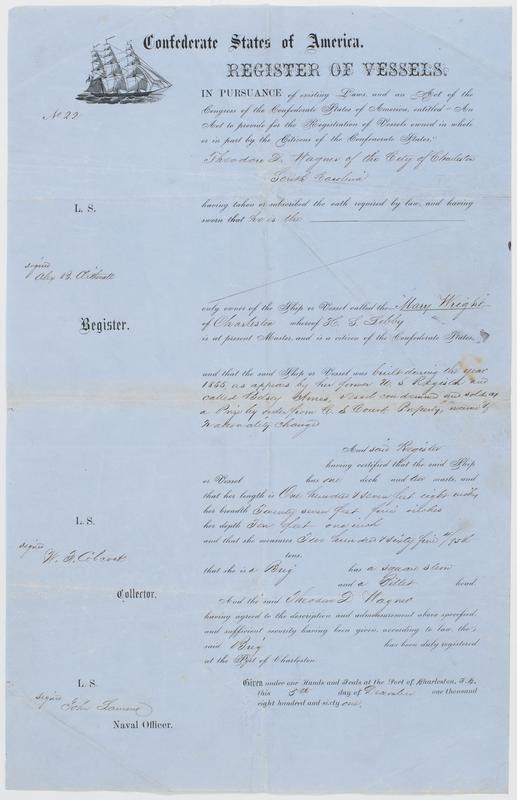 Confederate States of America.
REGISTER OF VESSELS.
No 22.
IN PURSUANCE of existing Laws, and an Act of the
Congress of the Confederate States of America, entitled "An
Act to provide for the Registration of Vessels owned in whole
or in part by the Citizens of the Confederate States,"
Theodore D. Wagner of the City of Charleston
South Carolina
L. S.
having taken or subscribed the oath required by law, and having
sworn that he is the
signed
Alex
Register.
only owner of the Ship or Vessel called the Mary Wright
of Charleston whereof H. S. Lebby
is at present Master, and is a citizen of the Confederate States,
and that the said Ship or Vessel was built during the year
1855, as appears by her former U. S. Register and
called Betsy Ames, vessel condemned and sold as
a Prize by order from C. S. Court, Property, name &
nationality changed
And said Register
having certified that the said Ship
or Vessel has one deck and two masts, and
that her length is One hundred & seven feet eight inches
her breadth Twenty seven feet four inches
her depth Ten feet one inch
and that she measures Two hundred & sixty five /95th
tons.
L. S.
signed
Collector.
that she is a Brig has a square stern
and a Billet head.
And the said Theodore D. Wagner
having agreed to the description and admeasurement above specified,
and sufficient security having been given, according to law, the
said Brig has been duly registered
at the Port of Charleston
L. S.
signed
John
Naval Officer.
Given under our Hands and Seals at the Port of Charleston, S.C.
this 5th day of December one thousand
eight hundred and sixty one.